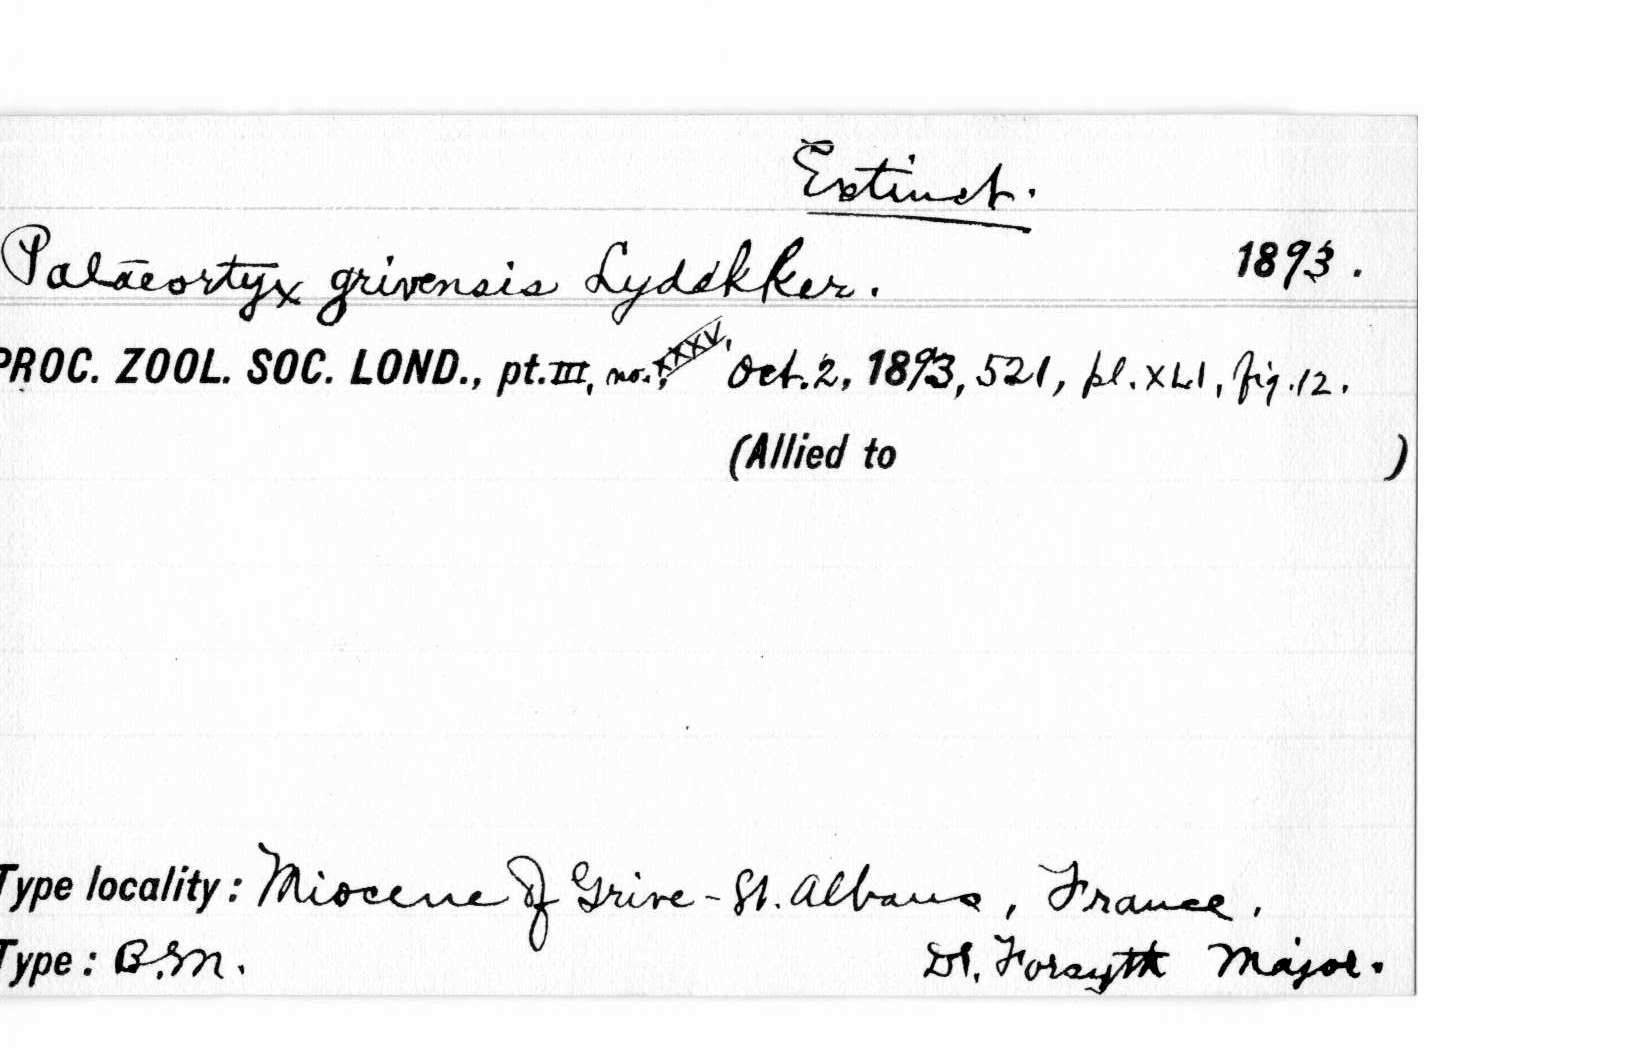 Extinct.
Palaeortyx grivensis Lydekker. 1893.
PROC. ZOOL. SOC. LOND., pt. III, no. XXXV, Oct. 2, 1893, 521, pl. XLI, fig. 12.
(Allied to )
Type locality: Miocene of Grive-St. Albans, France.
Type: B.M. Dr. Forsyth Major.